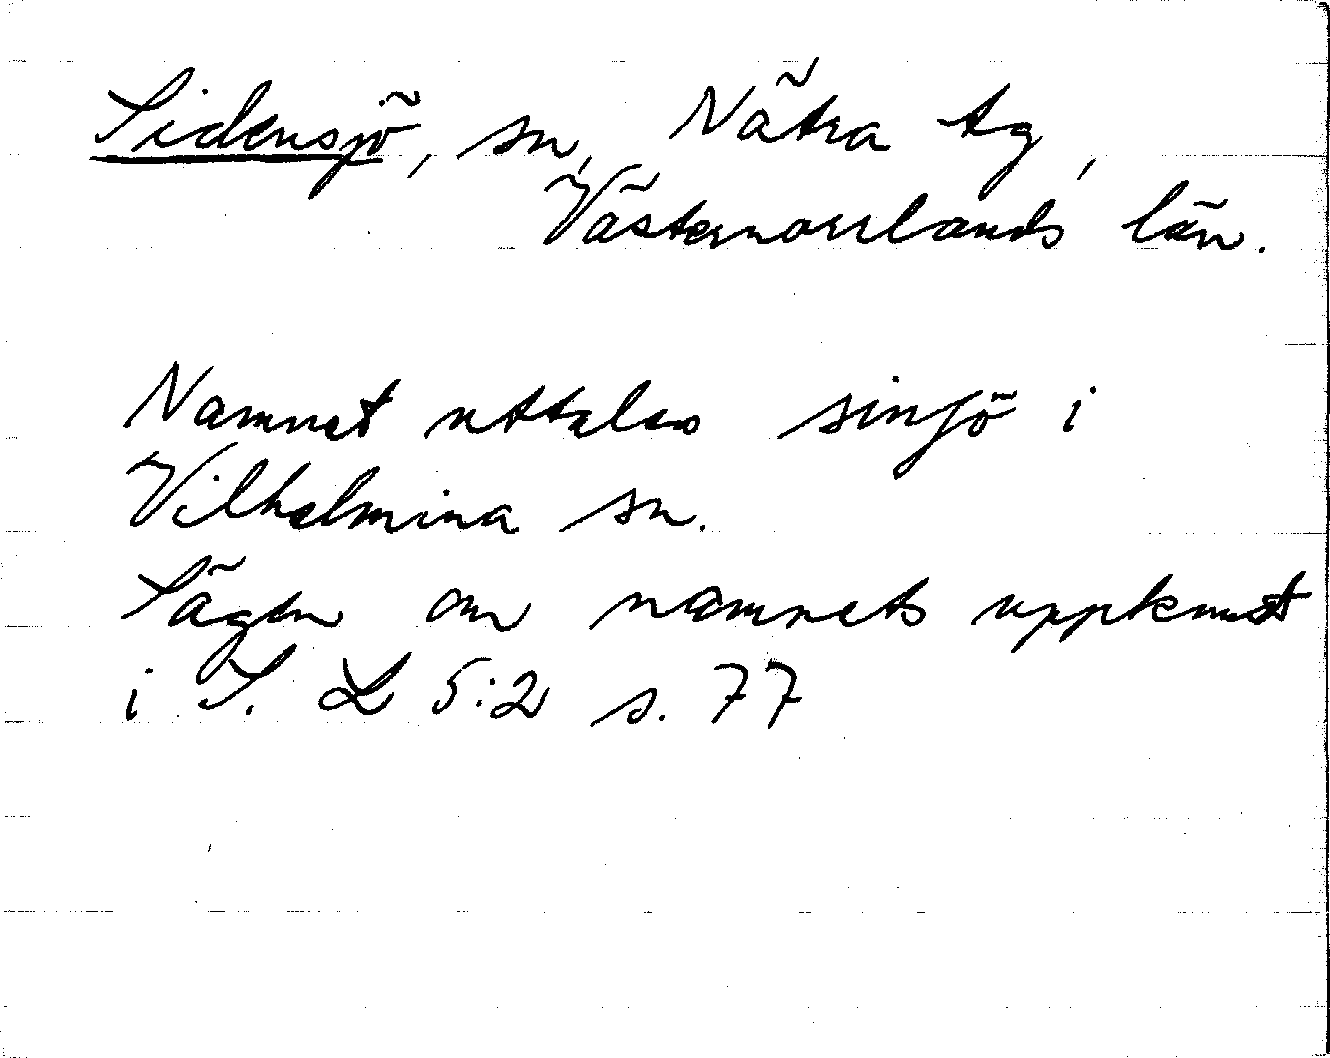 Sidensjö, sn, Nätra tg,
Västernorrlands län.
Namnet uttalas sinjö i
Vilhelmina sn.
Sägen om namnets uppkomst
i S. L 5:2 s. 77